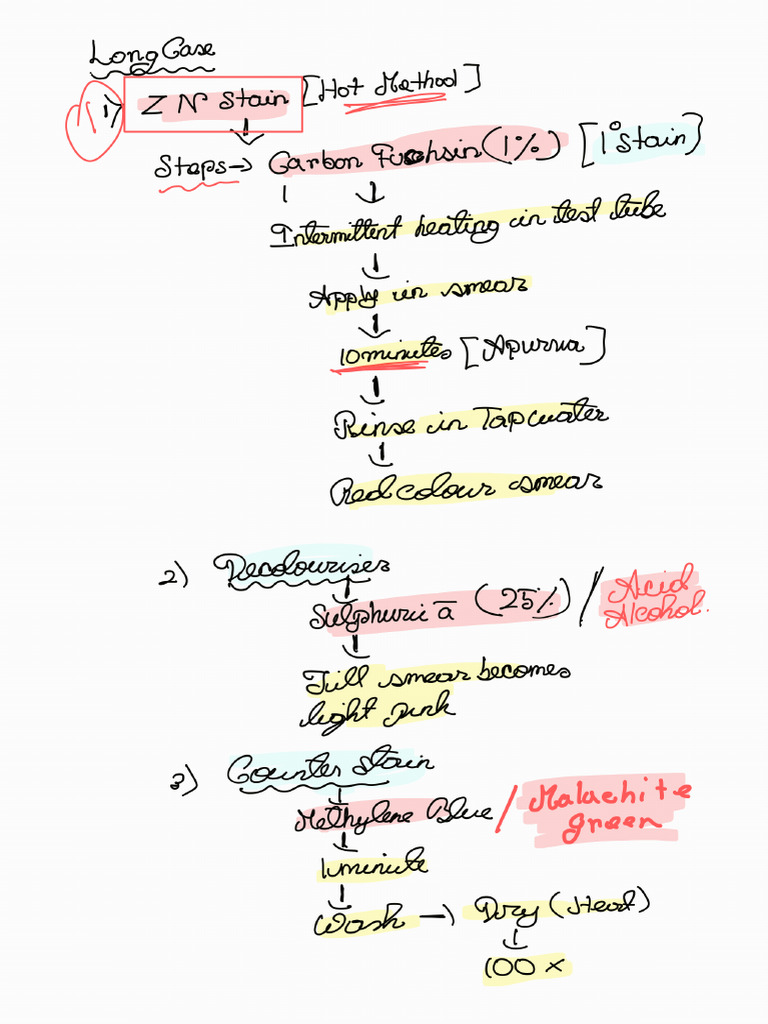 Long Case
1) Z N Stain [Hot Method]
Steps → Carbon Fuchsin (1%) [1° Stain]
Intermittent heating in test tube
Apply in smear
10 minutes [Apurva]
Rinse in Tapwater
Red colour smear
2) Decolouriser
Sulphuric a (25%) / Acid Alcohol.
Till smear becomes
light pink
3) Counter Stain
Methylene Blue / Malachite green
1 minute
Wash → Dry (Heat)
100 x